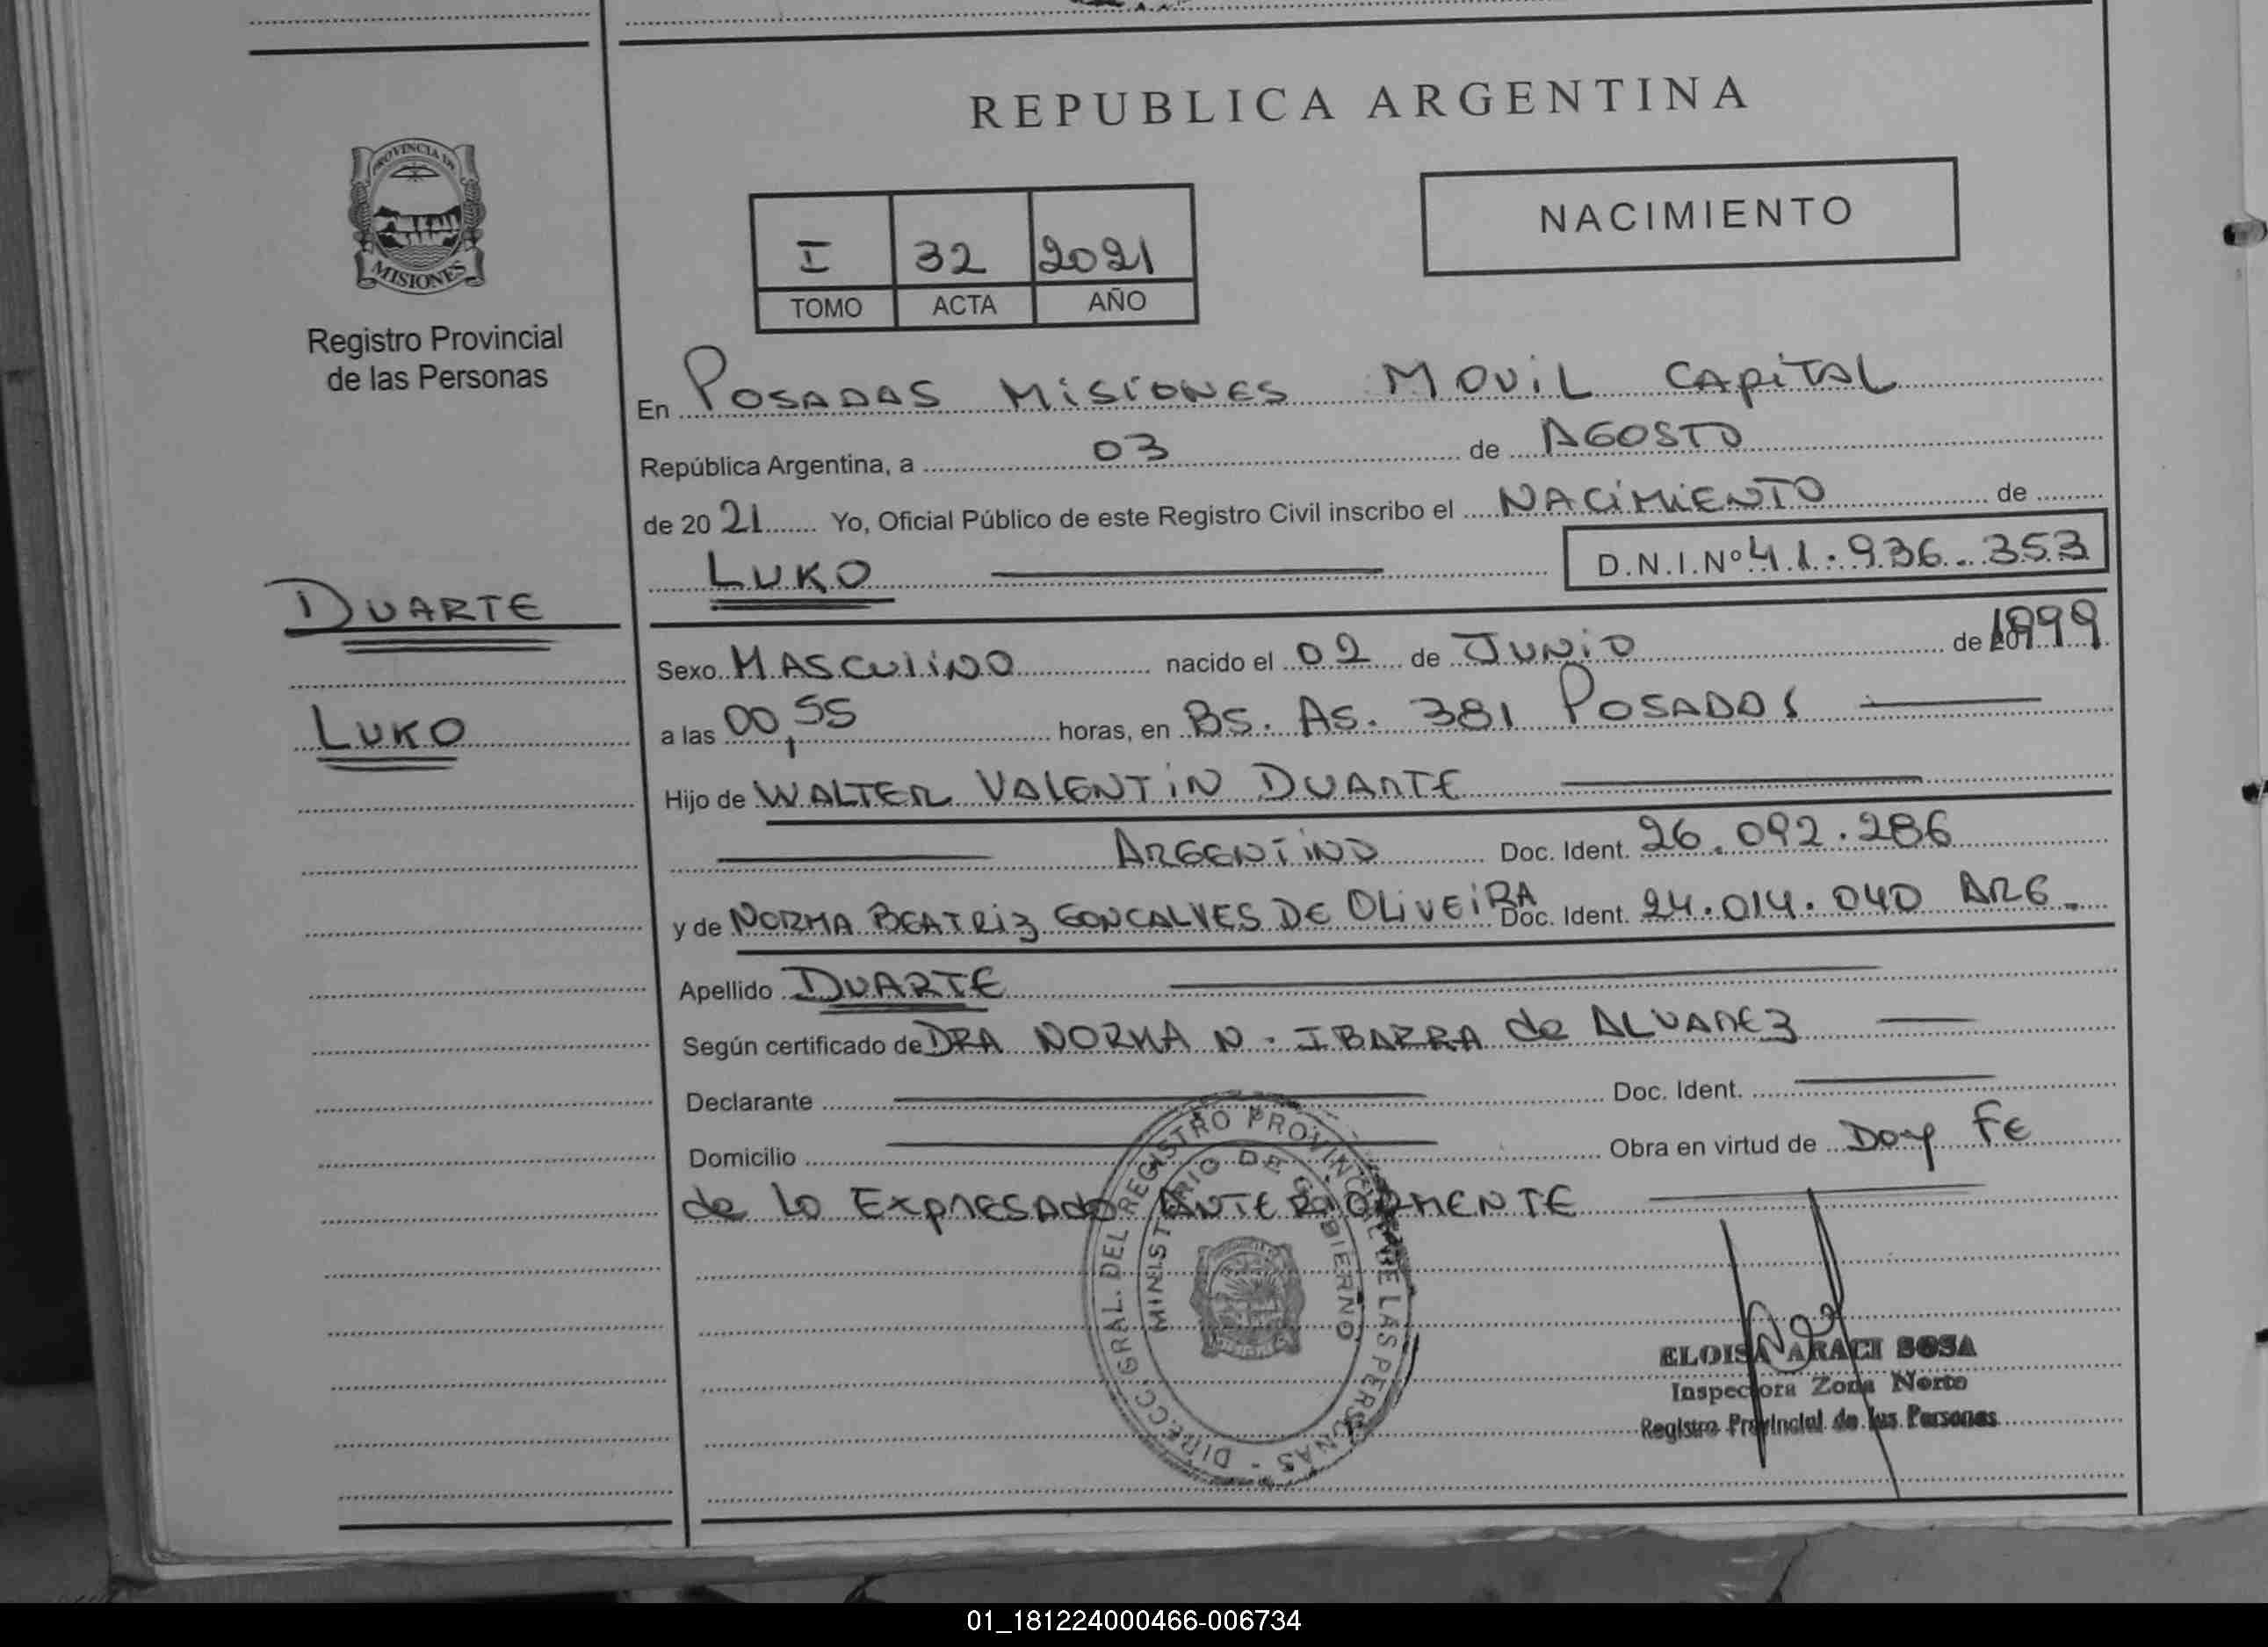 REPUBLICA ARGENTINA
PROVINCIA DE
MISIONES
Registro Provincial
de las Personas
NACIMIENTO
I 32 2021
TOMO ACTA AÑO
En POSADAS MISIONES MOVIL CAPITAL
República Argentina, a 03 de AGOSTO
de 2021 Yo, Oficial Público de este Registro Civil inscribo el NACIMIENTO de
LUKO D.N.I.Nº 41.936.353
DUARTE
LUKO
Sexo MASCULINO nacido el 02 de JUNIO de 1999
a las 00,55 horas, en BS. AS. 381 POSADAS
Hijo de WALTER VALENTIN DUARTE
ARGENTINO Doc. Ident. 26.092.286
y de NORMA BEATRIZ GONCALVES DE OLIVEIRA Doc. Ident. 24.014.040 ARG.
Apellido DUARTE
Según certificado de DRA NORMA N. IBARRA de ALVAREZ
Declarante Doc. Ident.
Domicilio Obra en virtud de Doy FE
de lo EXPRESADO ANTERIORMENTE
DIRECC. GRAL. DEL REGISTRO PROVINCIAL DE LAS PERSONAS -
MINISTERIO DE GOBIERNO
ELOISA ARACI SOSA
Inspectora Zona Norte
Registro Provincial de las Personas
01_181224000466-006734